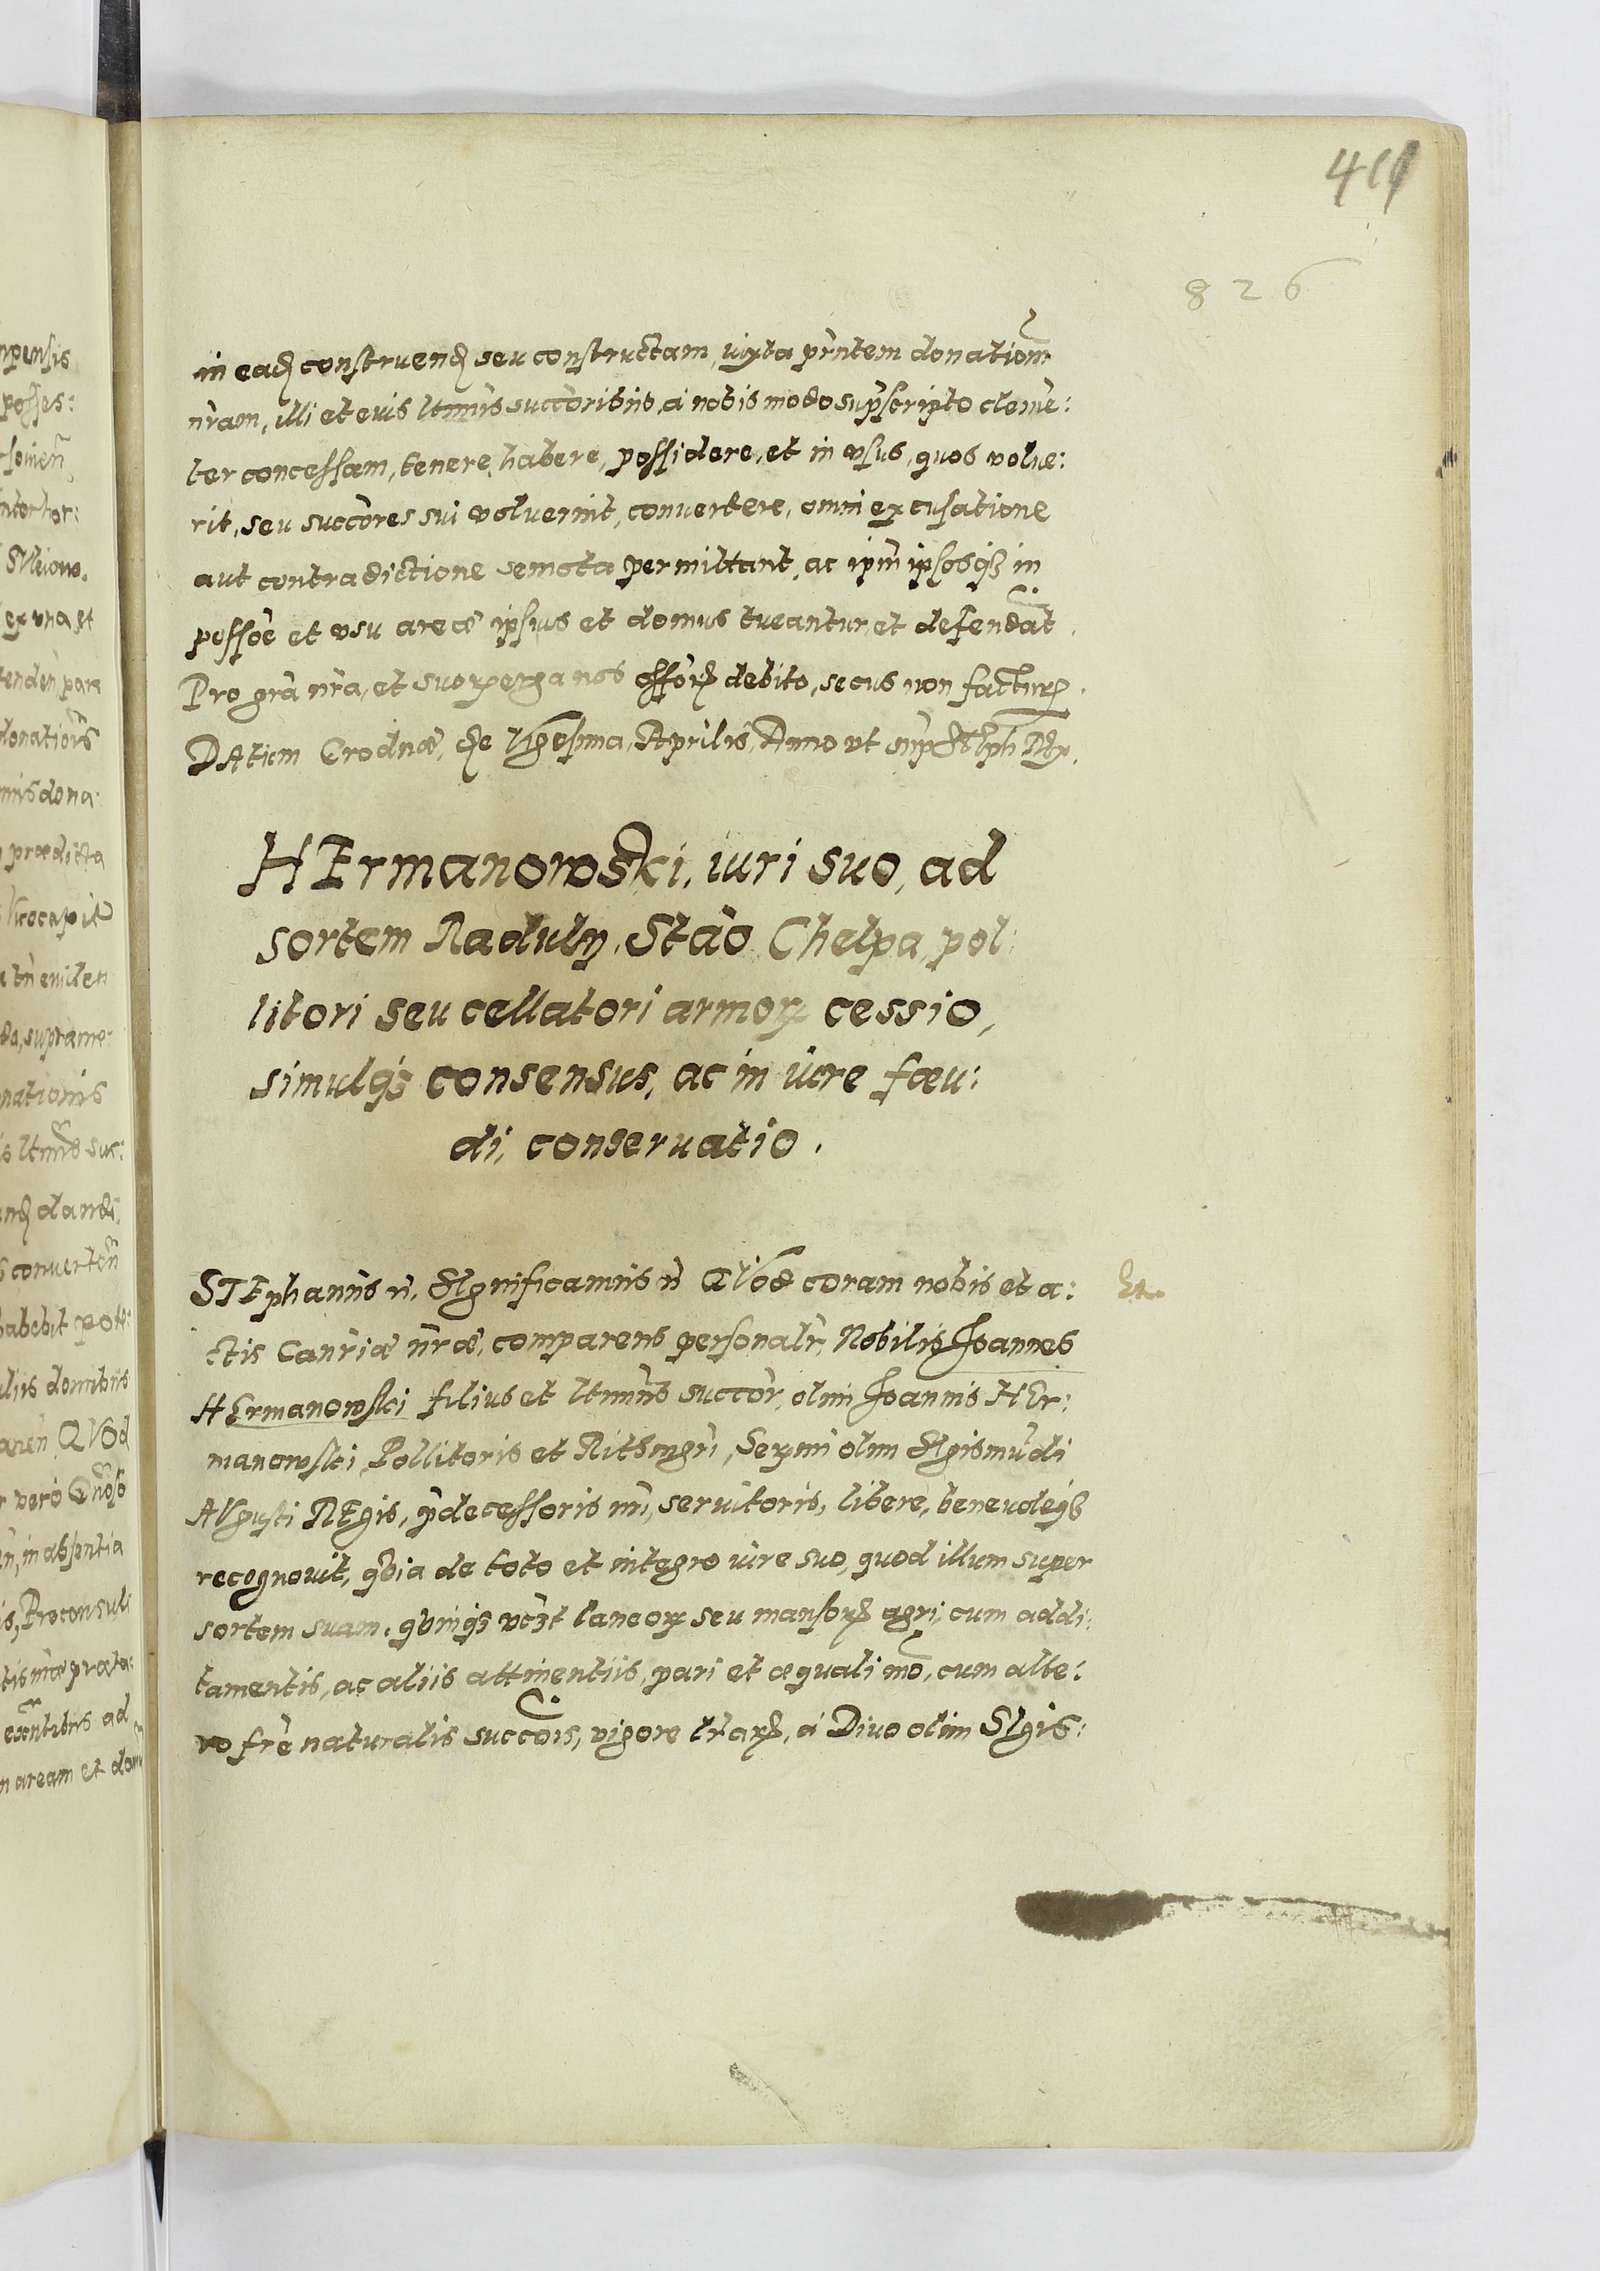 411
826
in ead construend seu constructam, iuxta pn̄tem donationē
nr̄am, illi et eius ltimis succoribus, a nobis modo supscripto cleme:
ter concessam, tenere, habere, possidere, et in usus, quos volue:
rit, seu succores sui voluerint, convertere, omni excusatione
aut contradictione semota permittant, ac ipm̄ ipsosq3 in
possoe et usu areæ ipsius et domus tueantur, et defendāt.
Pro gr̄a nr̄a, et suo erga nos off debito, secus non factur.
DAtum Grodnæ, die Vigesima, Aprilis, Anno ut sup Steph Rex.
HErmanowski, iuri suo, ad
sortem Raduly, Stāo Chelpa, pol:
litori seu cellatori armoꝝ cessio,
simulq3 consensus, ac in iure fœu:
di, conservatio.
STEphanus n̄. SIgnificamus n̄ QVod coram nobis et a:
ctis Canr̄iæ nr̄æ, comparens personalr̄, Nobilis Joannes
HErmanowski filius et ltimus succor, olim Joannis HEr:
manowski, Pollitoris et Sermi olim SIgismūdi
AVgusti REgis, p̄decessoris nr̄i, servitoris, libere, benevoleq3
recognovit, qvia de toto et integro iure suo, quod illum super
sortem suam, qvinq3 vc3t laneoꝝ seu mansoꝝ agri, cum addi:
tamentis, ac aliis attinentiis, pari et æquali mō, cum alte:
ro fr̄e naturalis succois, vigore lr̄aꝝ, a Divo olim SIgis: